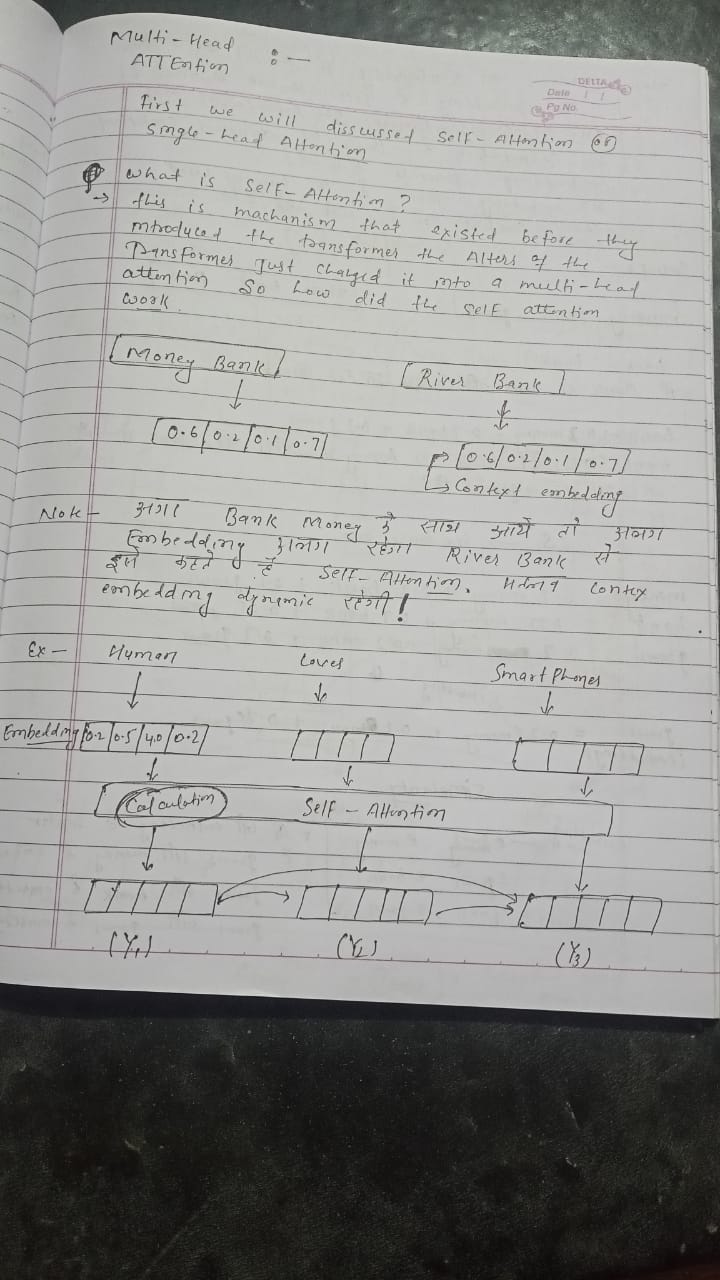 Multi-Head
ATTEntion :-
DELTA
Date / /
Pg No.
First we will disscussed Self-Attention or
Single-head Attention
What is Self-Attention?
→ this is machanism that existed before they
introduced the transformer the Alters of the
Transformer Just changed it into a multi-head
attention So how did the self attention
work.
Money Bank
River Bank
0.6 0.2 0.1 0.7
0.6 0.2 0.1 0.7
Context embedding
Note - अगर Bank Money के साथ आये तो अलग
Embedding अलग रहेगा River Bank से
इसे कहते है Self-Attention. मतलब Contex
embedding dynamic रहेगी!
Ex - Human Loves Smart Phones
Embedding 0.2 0.5 4.0 0.2
Calculation Self - Attention
(Y1) (Y2) (Y3)